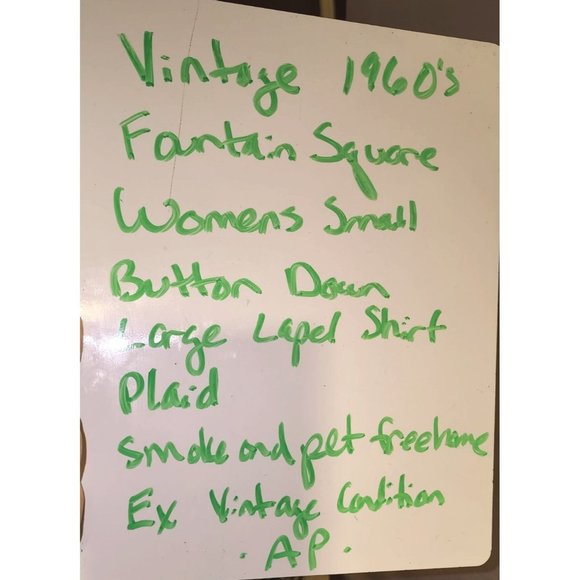 Vintage 1960's
Fountain Square
Womens Small
Button Down
Large Lapel Shirt
Plaid
Smoke and pet free home
Ex Vintage Condition
. AP .